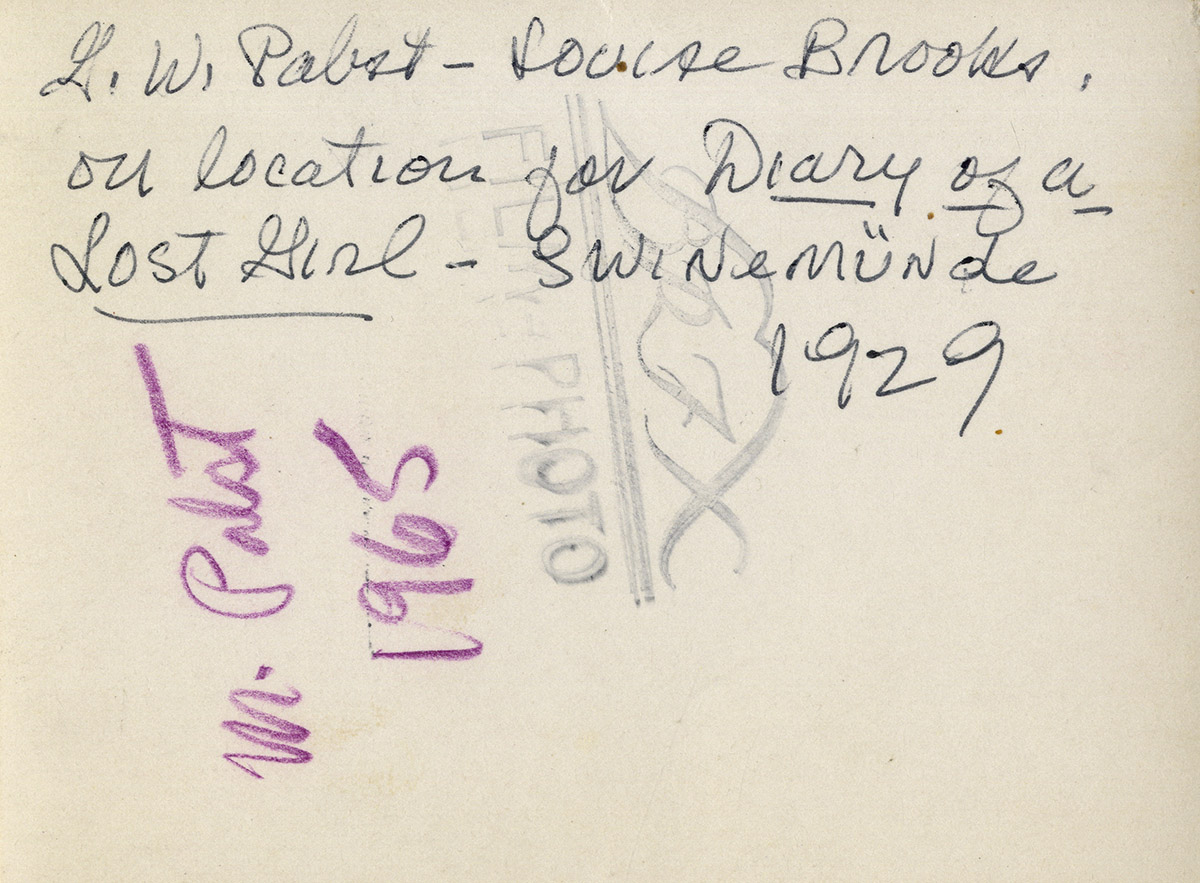 G. W. Pabst - Louise Brooks,
on location for Diary of a
Lost Girl - SWINEMÜNde
1929
FILM-PHOTO
M. Pabst
1965